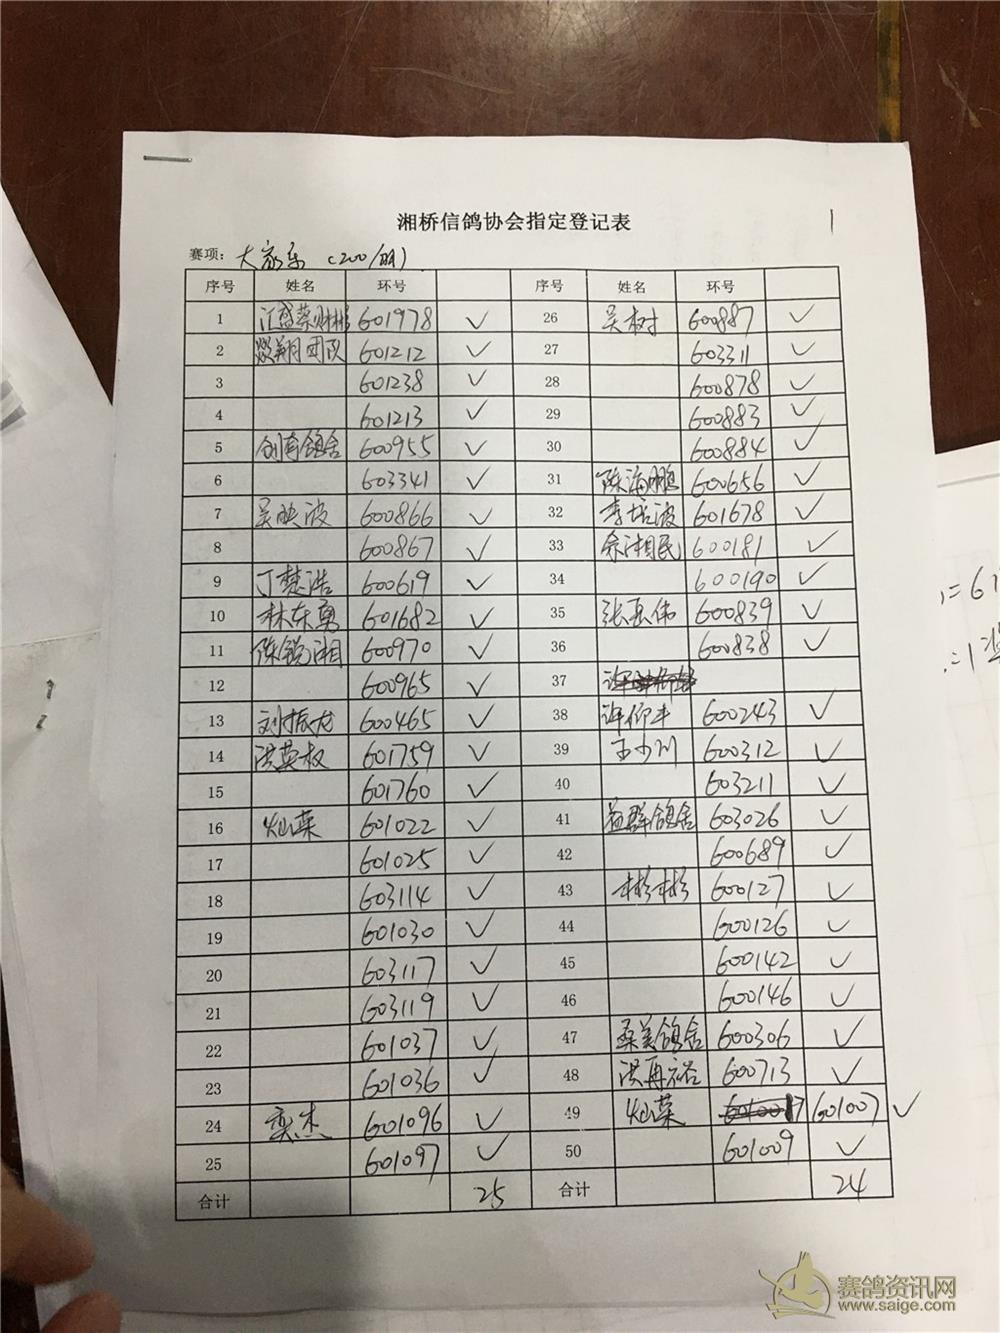 湘桥信鸽协会指定登记表
赛项：大家乐（200/羽）
序号 姓名 环号 序号 姓名 环号
1 601978 ✓ 26 吴树 600887 ✓
2 翔团队 601212 ✓ 27 603311 ✓
3 601238 ✓ 28 600878 ✓
4 601213 ✓ 29 600883 ✓
5 创育鸽舍 600955 ✓ 30 600884 ✓
6 603341 ✓ 31 陈海鹏 600656 ✓
7 吴映波 600866 ✓ 32 李培波 601678 ✓
8 600867 ✓ 33 余湘民 600181 ✓
9 丁楚浩 600619 ✓ 34 600190 ✓
10 林东勇 601682 ✓ 35 张岳伟 600839 ✓
11 陈锐湘 600970 ✓ 36 600838 ✓
12 600965 ✓ 37
13 刘振龙 600465 ✓ 38 许仰丰 600243 ✓
14 洪英权 601759 ✓ 39 王少川 600312 ✓
15 601760 ✓ 40 603211 ✓
16 灿荣 601022 ✓ 41 益群鸽舍 603026 ✓
17 601025 ✓ 42 600689 ✓
18 603114 ✓ 43 彬彬 600127 ✓
19 601030 ✓ 44 600126 ✓
20 603117 ✓ 45 600142 ✓
21 603119 ✓ 46 600146 ✓
22 601037 ✓ 47 桑美鸽舍 600306 ✓
23 601036 ✓ 48 洪再裕 600713 ✓
24 奕杰 601096 ✓ 49 灿荣 601007 ✓
25 601097 ✓ 50 601009 ✓
合计 25 合计 24
赛鸽资讯网
www.saige.com